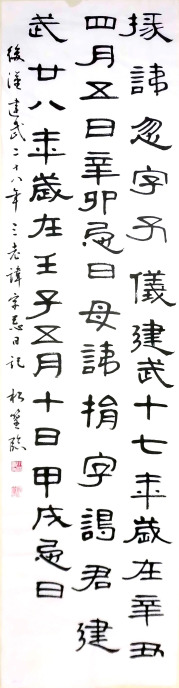 掾諱忽字子儀建武十七年歳在辛丑
四月五日辛卯忌日母諱捐字謁君建
武廿八年歳在壬子五月十日甲戌忌日
後漢建武二十八年三老諱字忌日記
臨